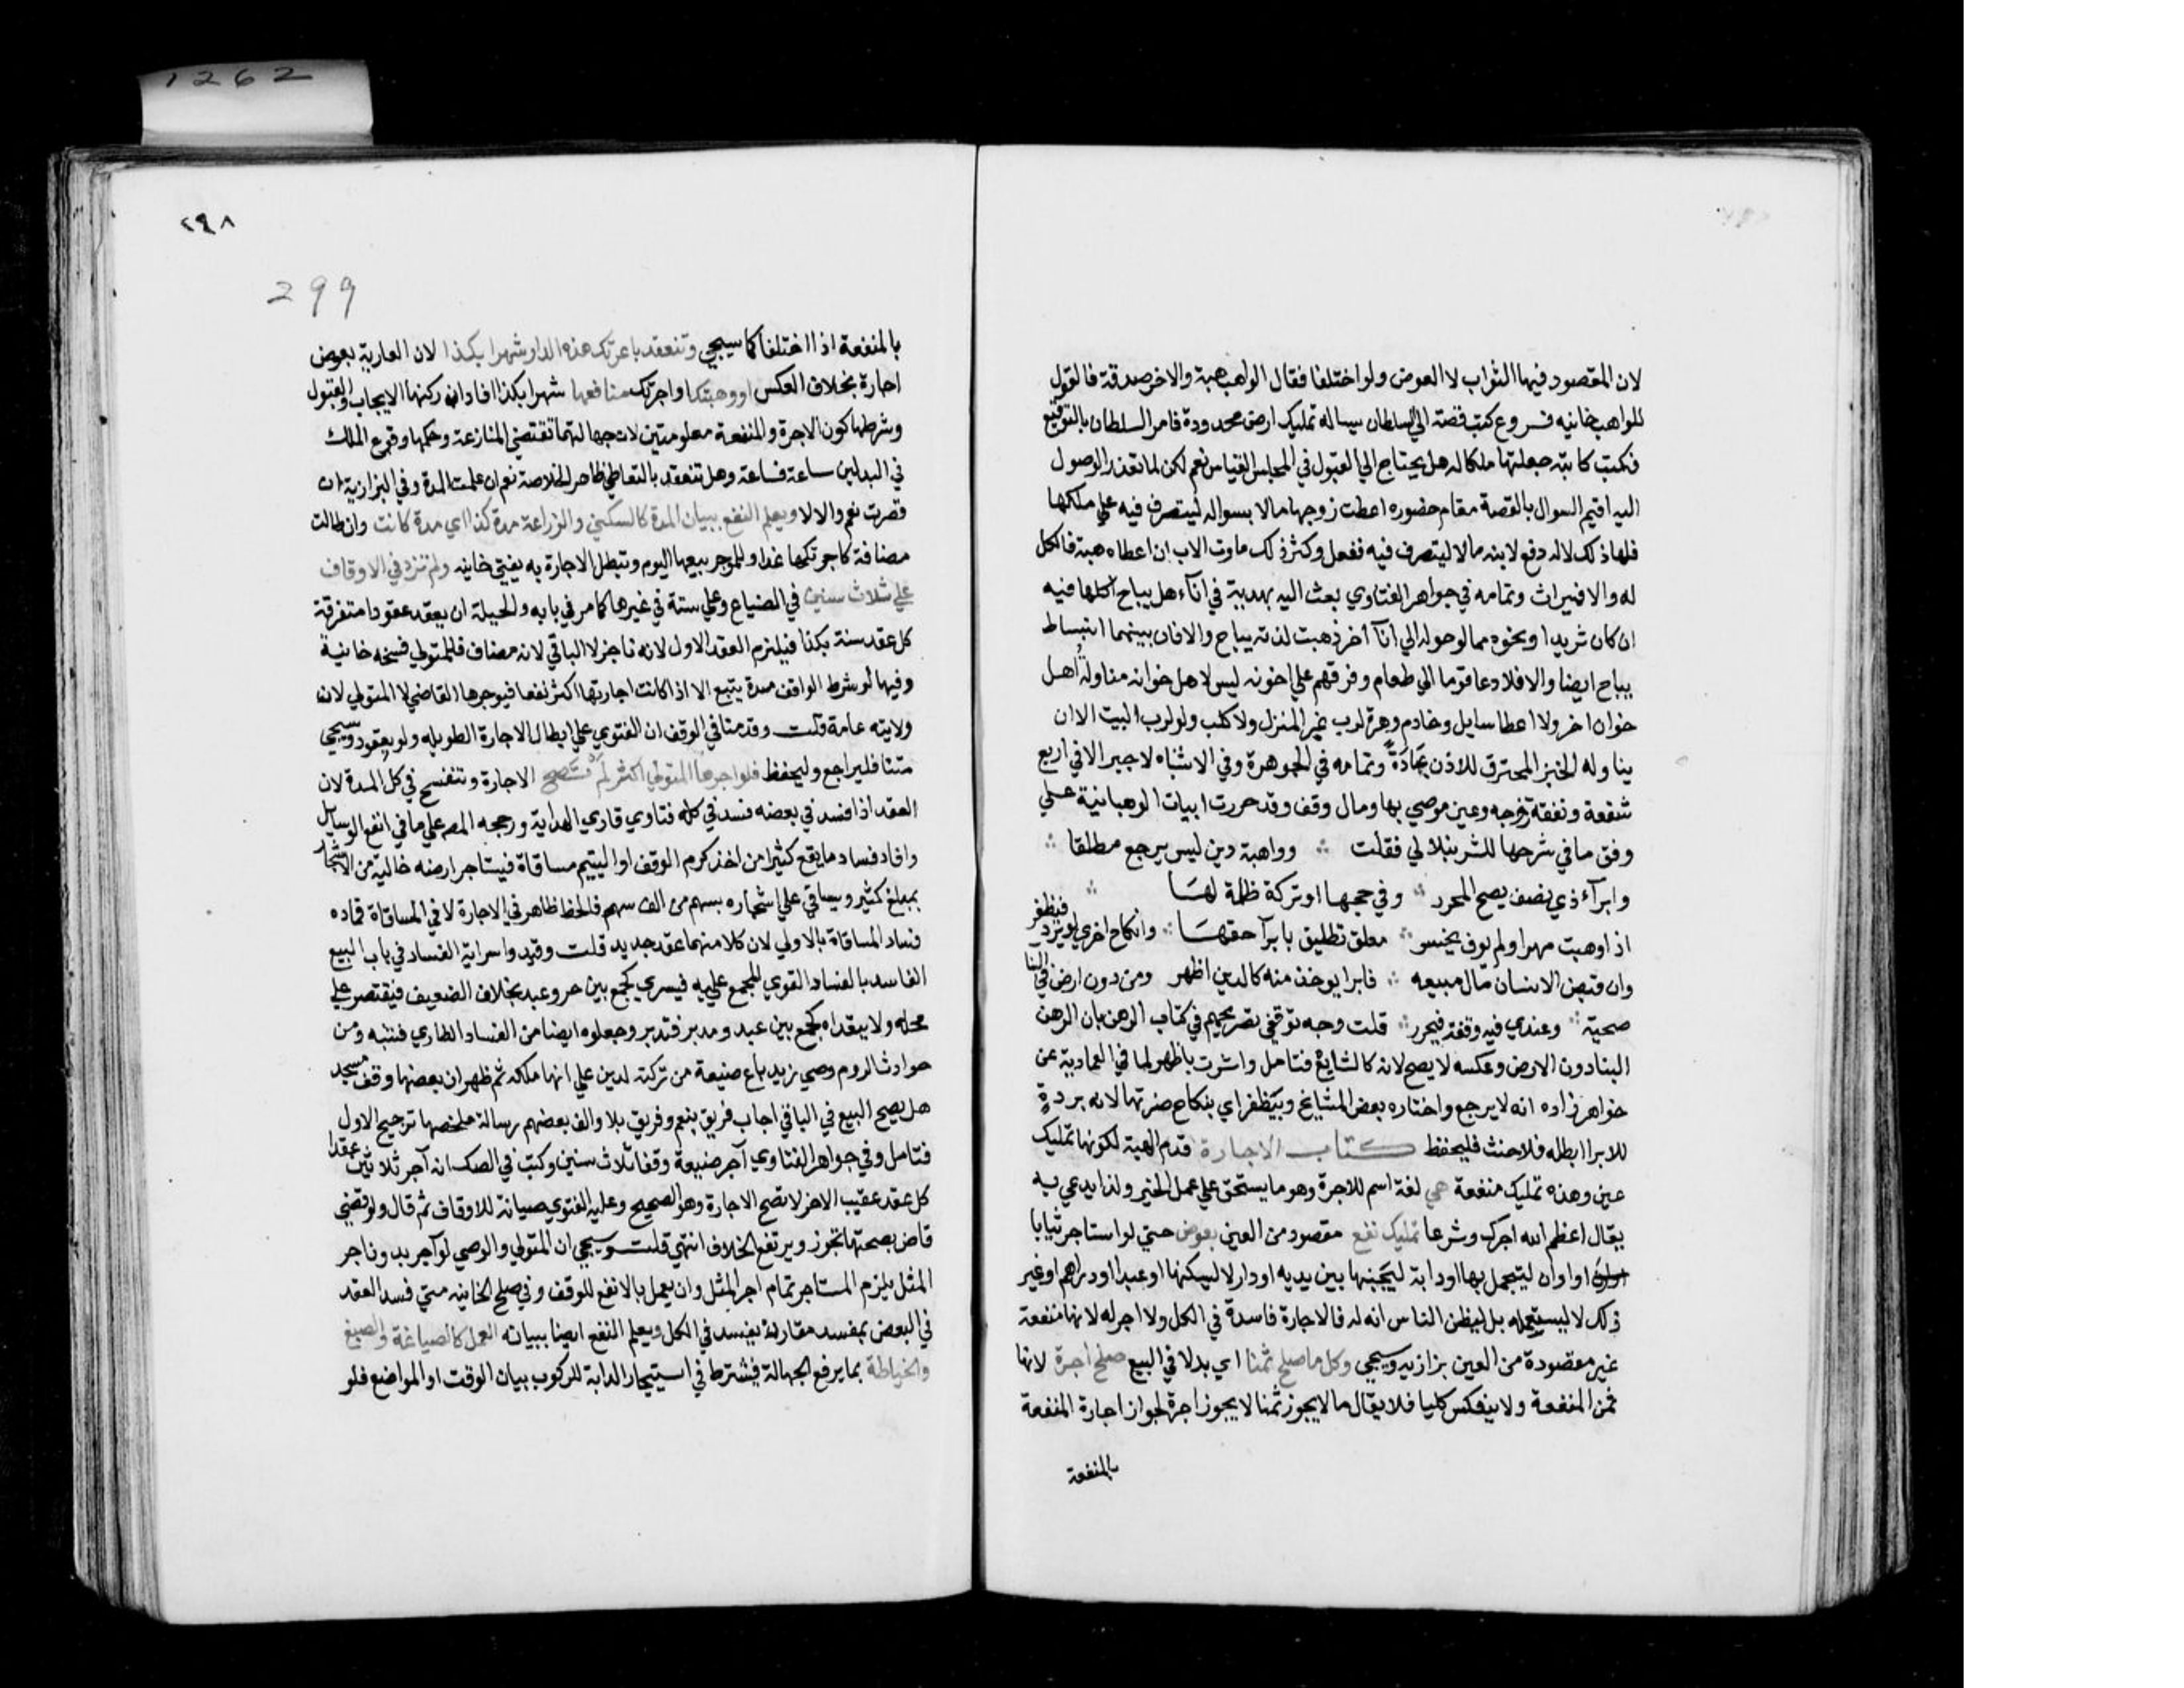 لان المقصود فيها الثواب لا العوض ولو اختلفا فقال الواهب هبة والاخر صدقة فالقول
للواهب خانيه فروع كتب قصة الي السلطان يساله تمليك ارض محدودة فامر السلطان بالتوقيع
فكتب كاتبه جعلتها ملكا له هل يحتاج الي القبول في المجلس القياس نعم لكن لما تعذر الوصول
اليه اقيم السوال بالقصة مقام حضوره اعطت زوجها مالا بسواله ليتصرف فيه علي ملكها
فلها ذلك لا له دفع لابنه مالا ليتصرف فيه ففعل وكثر ذلك ماوت الاب ان اعطاه هبة فالكل
له والا فميراث وتمامه في جواهر الفتاوي بعث اليه بهدية في اناء هل يباح اكلها فيه
ان كان ثريدا ونحوه مما لو حوله الي اناء اخر ذهبت لذته يباح والا فان بينهما انبساط
يباح ايضا والا فلا دعا قوما الي طعام وفرقهم علي اخونه ليس لاهل خوان مناولة اهل
خوان اخر ولا اعطا سايل وخادم وهرة لرب غير المنزل ولا كلب ولو لرب البيت الا ان
يناوله الخبز المحترق للاذن عادة وتمامه في الجوهرة وفي الاشباه لا جبر الا في اربع
شفعة ونفقة زوجه وعين موصي بها ومال وقف وقد حررت ابيات الوهبانية علي
وفق ما في شرحها للشرنبلالي فقلت ∴ وواهبة دين ليس يرجع مطلقا ∴
وابراء ذي نصف يصح المحرر ∴ وفي حجها او تركة ظلمة لها ∴
اذا وهبت مهرا ولم يوف يخسر ∴ معلق تطليق بابرا حقها ∴ وانكاح اخري لو يرد فيظفر
وان قبض الانسان مال مبيعه ∴ فابرا يوخذ منه كالدين اظهر ومن دون ارض في البنا
صحية ∴ وعندي فيه وقفة فيحرر ∴ قلت وجه توقفي تصريحهم في كتاب الرهن بان الرهن
البنا دون الارض وعكسه لا يصح لانه كالشايع فتامل واشرت باظهر لما في العمادية عن
خواهر زاده انه لا يرجع واختاره بعض المشايخ وبيظفر اي بنكاح ضرتها لانه برده
للابرا ابطله فلا حنث فليحفظ كتاب الاجارة قدم الهبة لكونها تمليك
عين وهذه تمليك منفعة هي لغة اسم للاجرة وهو ما يستحق علي عمل الخير ولذا يدعي به
يقال اعظم الله اجرك وشرعا تمليك نفع مقصود من العين بعوض حتي لو استاجر ثيابا
او اوان ليتجمل بها او دابة ليجنبها بين يديه او دارا لا ليسكنها او عبدا او دراهم او غير
ذلك لا ليستعمله بل ليظن الناس انه له فالاجارة فاسدة في الكل ولا اجر له لانها منفعة
غير مقصودة من العين بزازيه وسيجي وكل ما صلح ثمنا اي بدلا في البيع صلح اجرة لانها
ثمن المنفعة ولا ينعكس كليا فلا يقال ما لا يجوز ثمنا لا يجوز اجرة لجواز اجارة المنفعة
بالمنفعة
1262
٢٩٨
299
بالمنفعة اذا اختلفا كما سيجي وتنعقد باعرتك هذه الدار شهرا بكذا لان العارية بعوض
اجارة بخلاف العكس او وهبتك او اجرتك منافعها شهرا بكذا افاد ان ركنها الايجاب والقبول
وشرطها كون الاجرة والمنفعة معلومتين لان جهالتهما تقتضي المنازعة وحكمها وقوع الملك
في البدلين ساعة فساعة وهل تنعقد بالتعاطي ظاهر الخلاصة نعم ان علمت المدة وفي البزازية ان
قصرت نعم والا لا ويعلم النفع ببيان المدة كالسكني والزراعة مدة كذا اي مدة كانت وان طالت
مضافة كاجرتكها غدا وللموجر بيعها اليوم وتبطل الاجارة به يفتي خانيه ولم تزد في الاوقاف
علي ثلاث سنين في الضياع وعلي سنة في غيرها كما مر في بابه والحيلة ان يعقد عقودا متفرقة
كل عقد سنة بكذا فيلزم العقد الاول لانه ناجز لا الباقي لانه مضاف فللمتولي فسخه خانية
وفيها لو شرط الواقف مدة يتبع الا اذا كانت اجارتها اكثر نفعا فيوجرها القاضي لا المتولي لان
ولايته عامة قلت وقدمنا في الوقف ان الفتوي علي ابطال الاجارة الطويله ولو بعقود وسيجي
متنا فليراجع وليحفظ فلو اجرها المتولي اكثر لم تصح الاجارة وتنفسخ في كل المدة لان
العقد اذا فسد في بعضه فسد في كله فتاوي قاري الهداية ورجحه المصر علي ما في انفع الوسايل
وافاد فساد ما يقع كثيرا من اخذ كرم الوقف او اليتيم مساقاة فيستاجر ارضه خالية من الاشجار
بمبلغ كثير ويساقي علي اشجاره بسهم من الف سهم فالحظ ظاهر في الاجارة لا في المساقاة فمفاده
فساد المساقاة بالاولي لان كلا منهما عقد جديد قلت وقيدوا سراية الفساد في باب البيع
الفاسد بالفساد القوي المجمع عليه فيسري كجمع بين حر وعبد بخلاف الضعيف فيقتصر علي
محله ولا يتعداه كجمع بين عبد ومدبر فتدبر وجعلوه ايضا من الفساد الطاري فتنبه ومن
حوادث الروم وصي زيد باع ضيعة من تركته لدين علي انها ملكه ثم ظهر ان بعضها وقف مسجد
هل يصح البيع في الباقي اجاب فريق بنعم وفريق بلا والف بعضهم رسالة ملخصها ترجيح الاول
فتامل وفي جواهر الفتاوي آجر ضيعة وقفا ثلاث سنين وكتب في الصك انه آجر ثلاثين عقدا
كل عقد عقيب الاخر لا تصح الاجارة وهو الصحيح وعليه الفتوي صيانة للاوقاف ثم قال ولو قضي
قاض بصحتها تجوز ويرتفع الخلاف انتهي قلت وسيجي ان المتولي والوصي لو آجر بدون اجر
المثل يلزم المستاجر تمام اجر المثل وان يعمل بالانفع للوقف وفي صلح الخانيه متي فسد العقد
في البعض بمفسد مقارن يفسد في الكل ويعلم النفع ايضا ببيانه العمل كالصياغة والصبغ
والخياطة بما يرفع الجهالة فيشترط في استيجار الدابة للركوب بيان الوقت او المواضع فلو